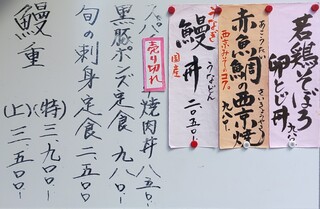 若鶏そぼろ
卵とじ丼
九八〇
赤魚鯛の西京焼
九八〇
うなぎ
鰻丼
うなどん
二〇五〇
国産
売り切れ
焼肉丼
八五〇
黒豚ポンズ定食
九八〇
旬の刺身定食
二、五〇〇
鰻重
(特)三、九〇〇
(上)三、五〇〇